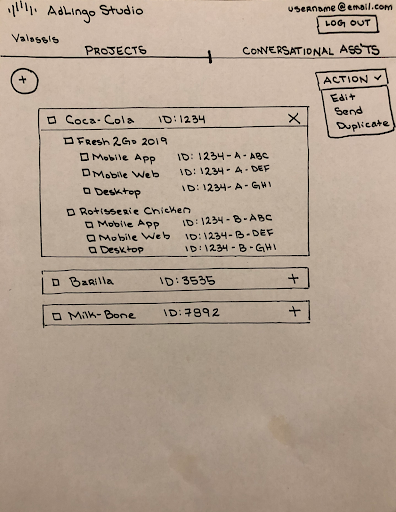 AdLingo Studio
username@email.com
LOG OUT
Valassis
PROJECTS
CONVERSATIONAL ASS'TS
+
ACTION
Edit
Send
Duplicate
Coca-Cola ID:1234 X
Fresh 2Go 2019
Mobile App ID: 1234-A-ABC
Mobile Web ID: 1234-A-DEF
Desktop ID: 1234-A-GHI
Rotisserie Chicken
Mobile App ID: 1234-B-ABC
Mobile Web ID: 1234-B-DEF
Desktop ID: 1234-B-GHI
Barilla ID:3535 +
Milk-Bone ID:7892 +